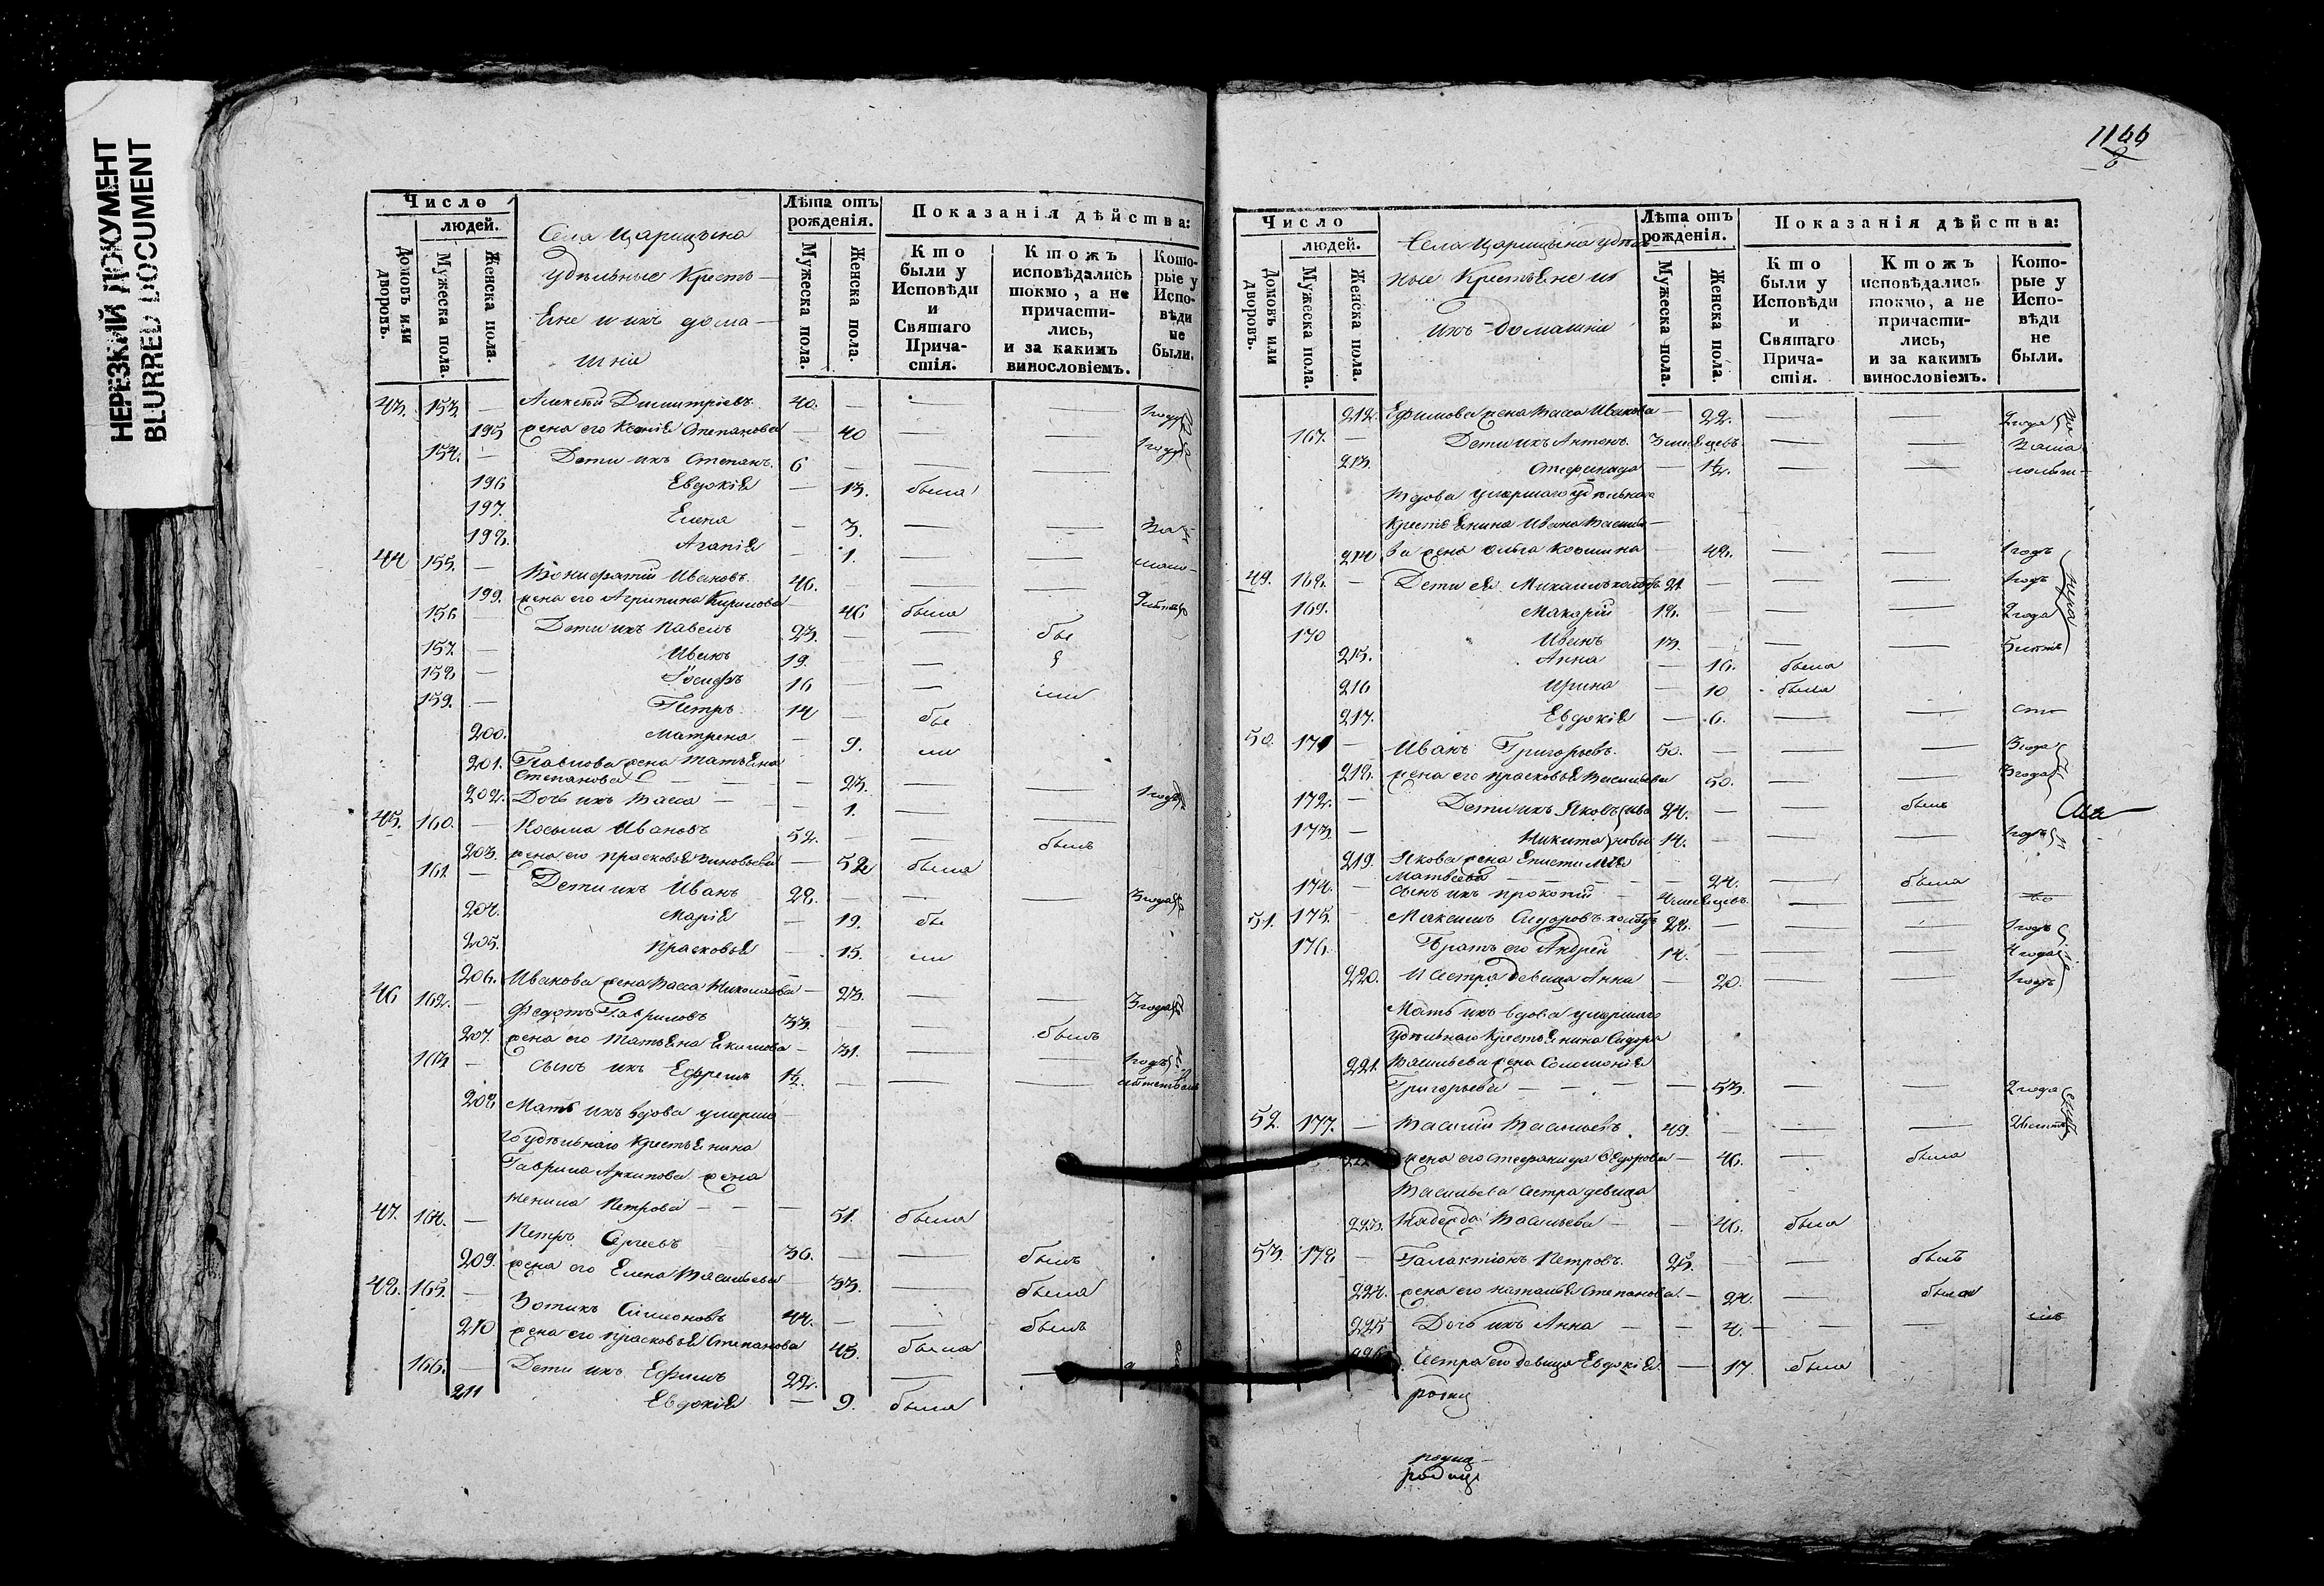 НЕРЕЗКИЙ ДОКУМЕНТ
BLURRED DOCUMENT
Число
людей.
Домовъ или дворовъ.
Мужеска пола.
Женска пола.
Села Царицына
удѣльные Кресть-
яне и ихъ дома-
шніи
Лѣта отъ рожденія.
Мужеска пола.
Женска пола.
Показанія дѣйства:
Кто были у Исповѣди и Святаго Причастія.
Ктожъ исповѣдались токмо, а не причастились, и за какимъ винословіемъ.
Которые у Исповѣди не были.
43. 153. — Алексѣй Димитріевъ 40. — — 1 годъ
195 жена его Ксенія Степанова — 40 — — 1 годъ
154. — Дети ихъ Степанъ 6 — — —
196 Евдокія — 13. была
197. Елена — 3. — — за
198. Агапія — 1. — — мало-
44 155. — Вонифатій Ивановъ 46. — — — 2 лѣта
199. жена его Агрипина Кирилова — 46 была
156 — Дети ихъ Павелъ 23. — — бы
157. — Иванъ 19. —
158 — Іосифъ 16 — ли
159. — Петръ 14 — бы
200. Матрена — 9. ли
201. Павлова жена Татьяна
Степанова — 23. — — 1 годъ
202. Дочь ихъ Васса — — 1. — —
45. 160. — Косьма Ивановъ 52. — былъ
203. жена его Прасковья Зиновьева — 52 была
161. — Дети ихъ Иванъ 28. — — — 3 года
204. Марія — 19. бы
205. Прасковья — 15. ли
206. Иванова жена Васса Николаева — 23. — — 3 года
46 162. — Федотъ Гавриловъ 33. — — былъ
207. жена его Татьяна Якимова — 31. — — 1 годъ
163 — Сынъ ихъ Ефремъ 1½. — — —
208 Мать ихъ вдова умерша-
го удѣльнаго крестьянина
Гаврила Архипова жена
Ненила Петрова — — — 51. была
47. 164. — Петръ Сергеевъ 36. — — былъ
209. жена его Елена Васильева 33. — была
48. 165. — Зотикъ Симоновъ 44. — — былъ
210 жена его Прасковья Степанова 45. была
166. — Дети ихъ Ефимъ 22. — —
211 Евдокія — 9. была
1166
8
Число
людей.
Домовъ или дворовъ.
Мужеска пола.
Женска пола.
Села Царицына удѣль-
ные Крестьяне и
ихъ домашніи
Лѣта отъ рожденія.
Мужеска пола.
Женска пола.
Показанія дѣйства:
Кто были у Исповѣди и Святаго Причастія.
Ктожъ исповѣдались токмо, а не причастились, и за какимъ винословіемъ.
Которые у Исповѣди не были.
212. Ефимова жена Васса Иванова — 22. — — 2 года
167. — Дети ихъ Антонъ 3 месяцевъ — — за мало
213. Стефанида — 1½. — — лѣтст-
Вдова умершаго удѣльнаго
крестьянина Ивана Василь-
214 ва жена Ольга Космина — 48. — — 1 годъ
49. 168. — Дети ея Михаилъ холостъ 21. — — — 1 годъ
169. Макарій 18. — — — 2 года
170 Иванъ 13. — — — 5 лѣтъ
215. Анна — 16. была
216 Ирина — 10 была
217. Евдокія — 6. — — ст-
50. 171 — Иванъ Григорьевъ 50. — — — 3 года
218. жена его Прасковья Васильева 50. — — 3 года
172. — Дети ихъ Яковъ 24. — — былъ
173. — Никита 14. — — — 1 годъ
219. Якова жена Епистимія
Матвеева — — — 24. — была
174. — Сынъ ихъ Прокопій — 4 месяцевъ — — во
51. 175. — Максимъ Сидоровъ холостъ 28. — — — 1 годъ
176. Братъ его Андрей 14. — — — 4 года
220. И сестра девица Анна — 20. — — 1 годъ
Мать ихъ вдова умершаго
удѣльнаго крестьянина Сидора
221. Васильева жена Соломонія
Григорьева — — — 53. — 2 года
52. 177. — Василій Васильевъ 49. — — — 2 лѣта
222 жена его Стефанида Ѳедорова — 46. — была
Васильева сестра девица
223. Надежда Васильева — — 46. была
53. 178 — Галактіонъ Петровъ 25. — — былъ
224. жена его Наталья Степанова — 24. — была
225 Дочь ихъ Анна — — 4. — —
226. Сестра его девица Евдокія — 17. была